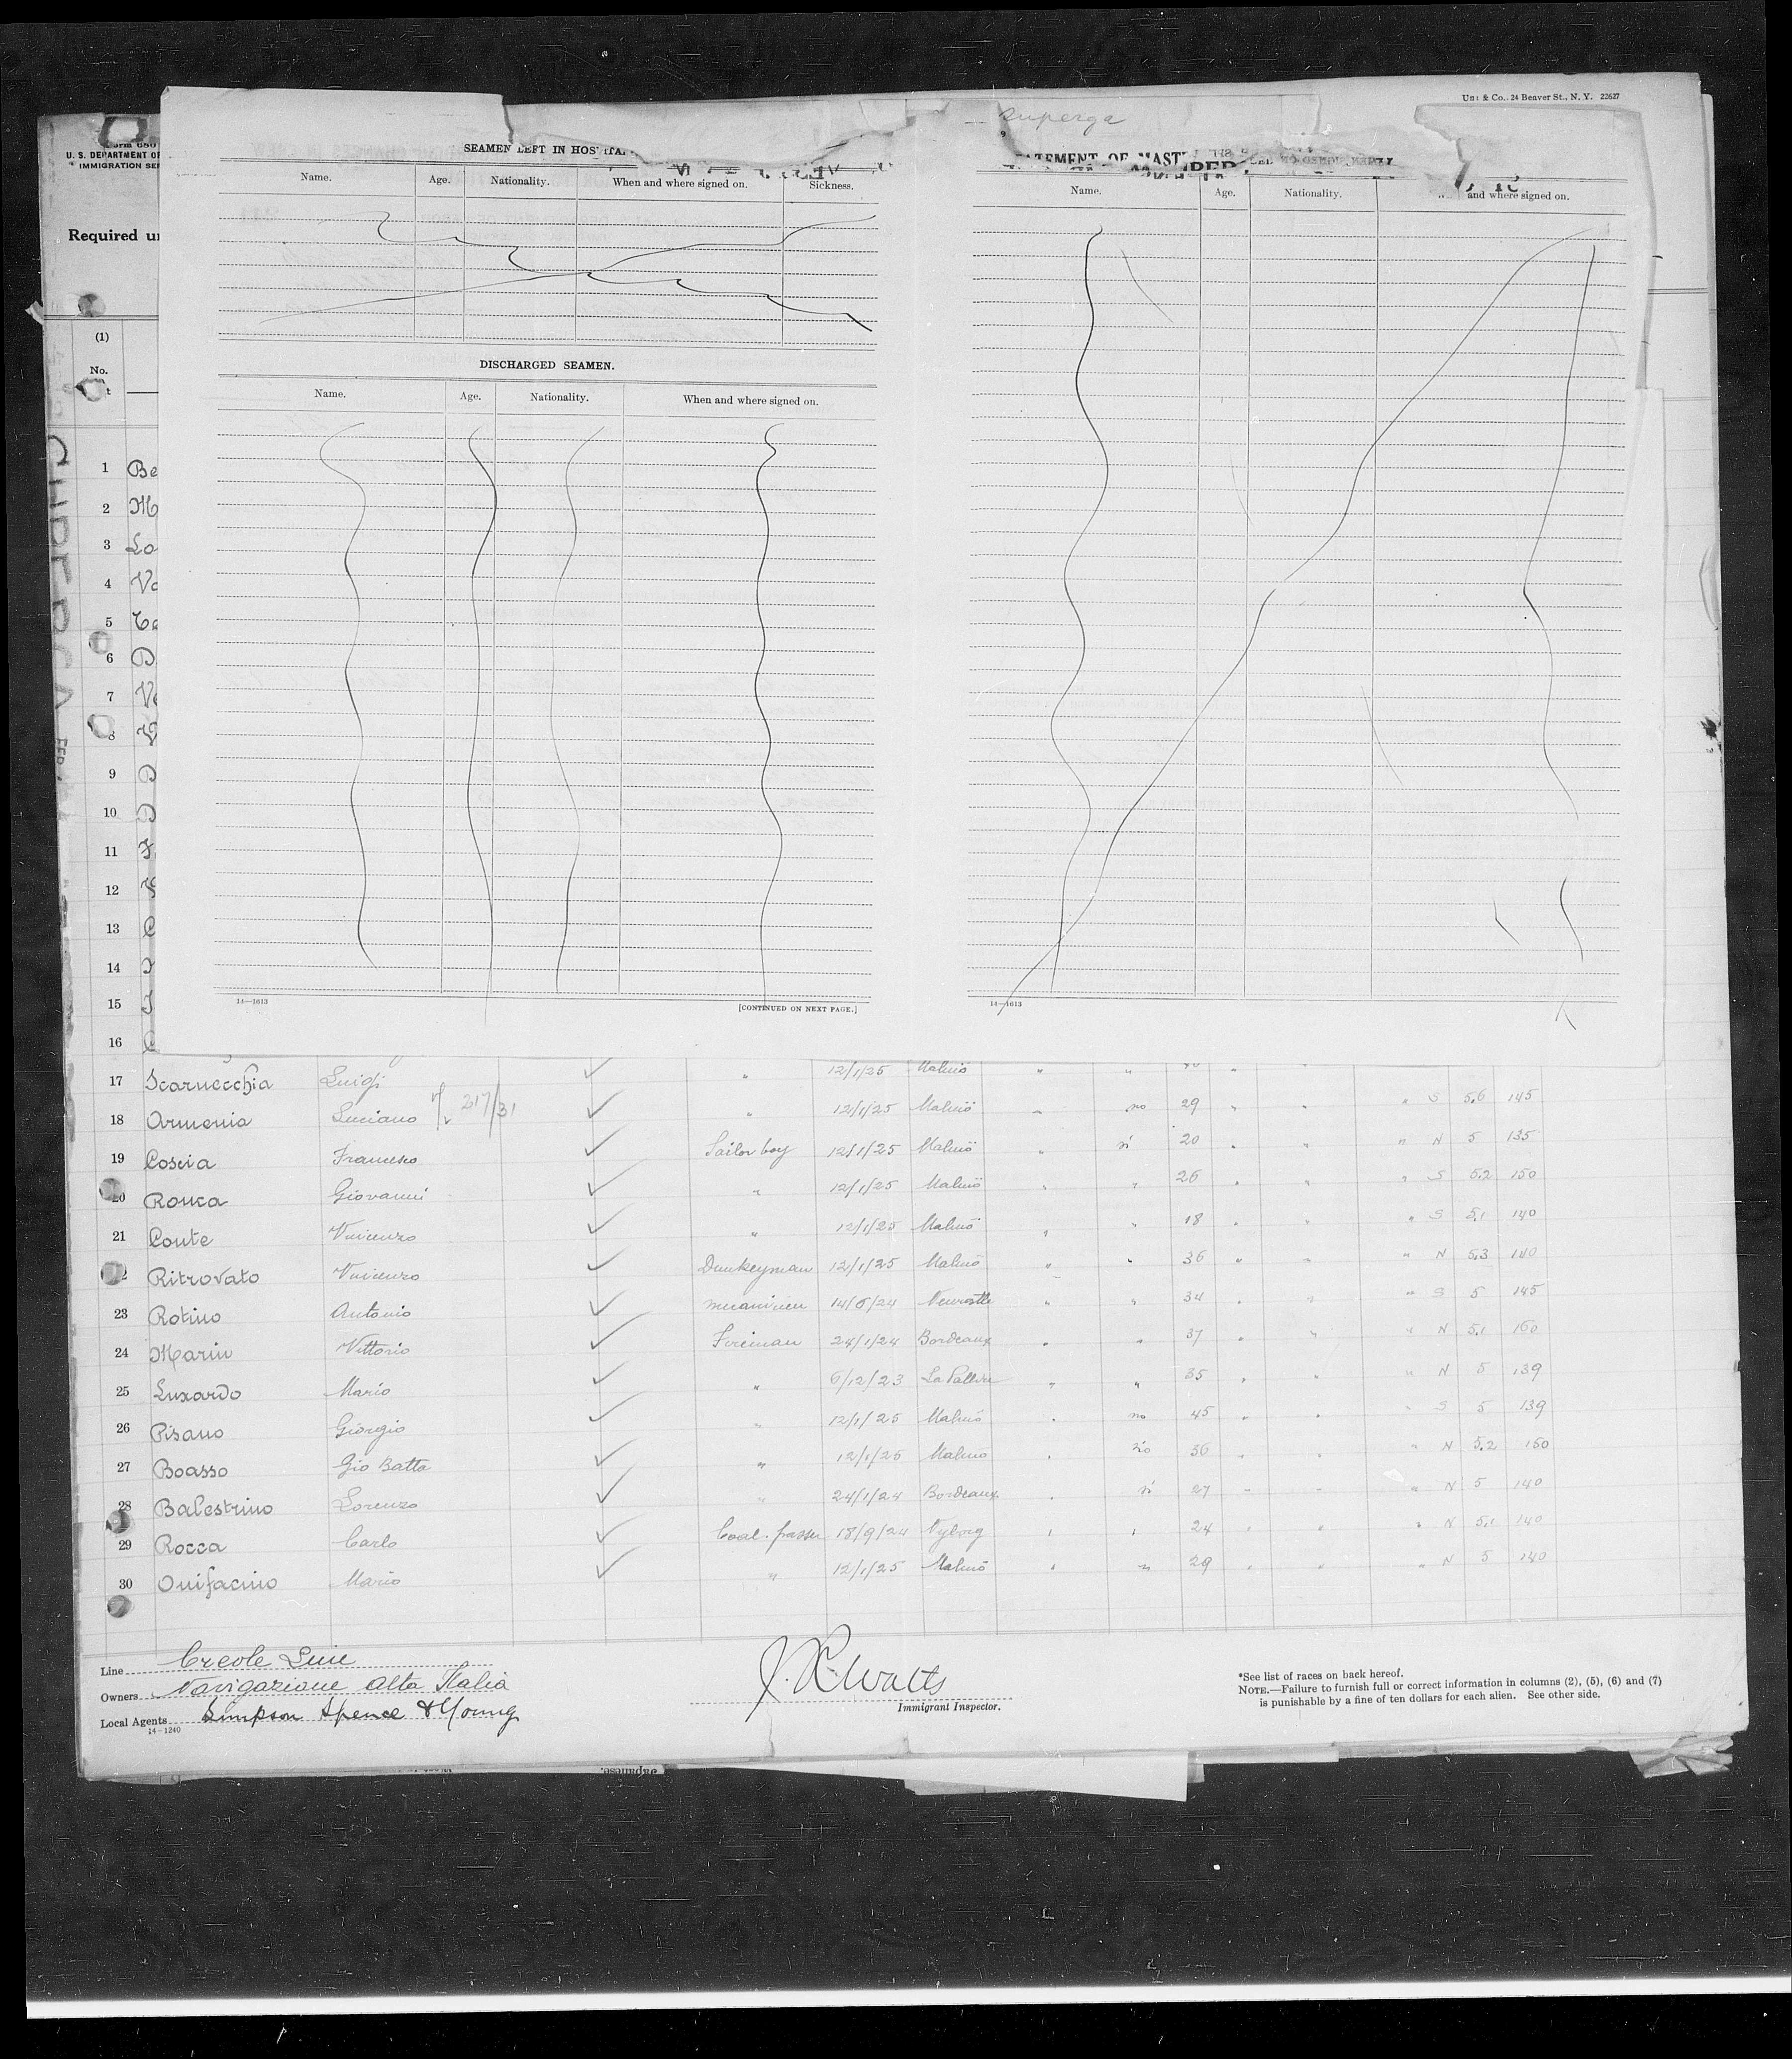 Superga
& Co. 24 Beaver St., N. Y. 22627
U. S. DEPARTMENT OF
IMMIGRATION SER
Required un
(1)
No.
SEAMEN LEFT IN HOSPITAL
Name. Age. Nationality. When and where signed on. Sickness.
DISCHARGED SEAMEN.
Name. Age. Nationality. When and where signed on.
14—1613 [CONTINUED ON NEXT PAGE.]
9
ATEMENT OF MAST
Name. Age. Nationality. and where signed on.
14—1613
SUPERGA FEB
1 Be
2 M
3 Lo
4 Va
5 Ca
6 D
7 Ve
8 V
9 D
10 D
11 F
12
13 C
14
15
16
17 Scarnecchia Luigi ✓ " 12/1/25 Malmö " "
18 Armenia Luciano 217/31 ✓ " 12/1/25 Malmö " no 29 " " " S 5.6 145
19 Coscia Francesco ✓ Sailor boy 12/1/25 Malmö " si 20 " " " N 5 135
20 Ronca Giovanni ✓ " 12/1/25 Malmö " " 26 " " " S 5.2 150
21 Conte Vincenzo ✓ " 12/1/25 Malmö " " 18 " " " S 5.1 140
22 Ritrovato Vincenzo ✓ Dunkeyman 12/1/25 Malmö " " 36 " " " N 5.3 140
23 Rotino Antonio ✓ 14/5/24 Newcastle " " 34 " " " S 5 145
24 Marin Vittorio ✓ Fireman 24/1/24 Bordeaux " " 37 " " " N 5.1 160
25 Luxardo Mario ✓ " 6/12/23 La Pallice " " 35 " " " N 5 139
26 Pisano Giorgio ✓ " 12/1/25 Malmö " no 45 " " " S 5 139
27 Boasso Gio Batta ✓ " 12/1/25 Malmö " no 36 " " " N 5.2 150
28 Balestrino Lorenzo ✓ " 24/1/24 Bordeaux " si 27 " " " N 5 140
29 Rocca Carlo ✓ Coal-passer 18/9/24 Nyborg " " 24 " " " N 5.1 140
30 Onifacino Mario ✓ " 12/1/25 Malmö " " 29 " " " N 5 140
Line Creole Line
Owners Navigazione Alta Italia
Local Agents Simpson Spence & Young
14-1240
J. R. Watts
Immigrant Inspector.
*See list of races on back hereof.
NOTE.—Failure to furnish full or correct information in columns (2), (5), (6) and (7)
is punishable by a fine of ten dollars for each alien. See other side.